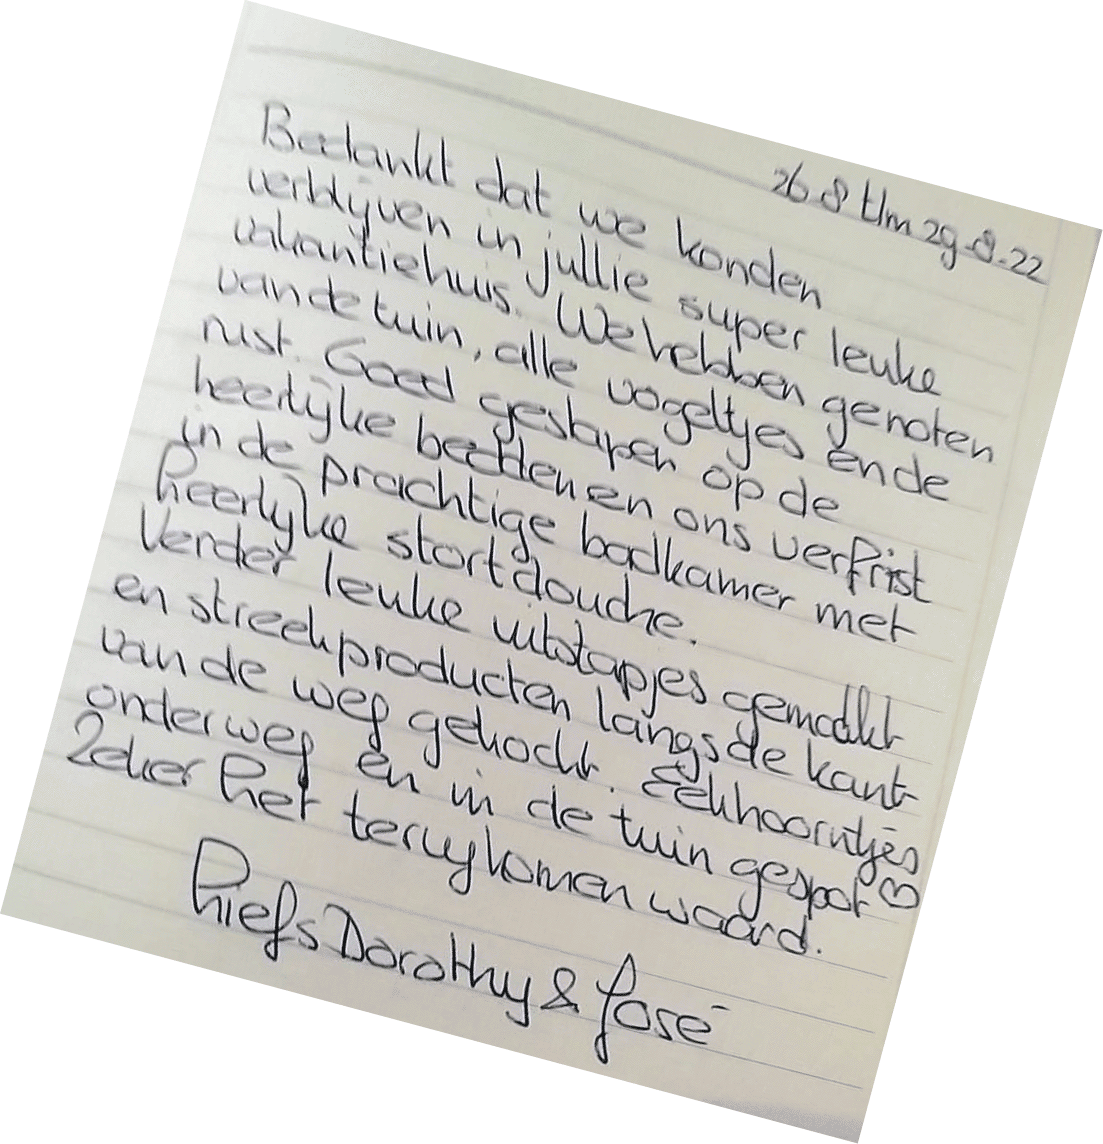 26 8 t/m 29-8-22
Bedankt dat we konden
verblijven in jullie super leuke
vakantiehuis. We hebben genoten
van de tuin, alle vogeltjes en de
rust. Goed geslapen op de
heerlijke bedden en ons verfrist
in de prachtige badkamer met
heerlijke stortdouche.
Verder leuke uitstapjes gemaakt
en streekproducten langs de kant
van de weg gekocht. Eekhoorntjes
onderweg en in de tuin gespot ♡
Zeker het terugkomen waard.
Liefs Dorothy & José